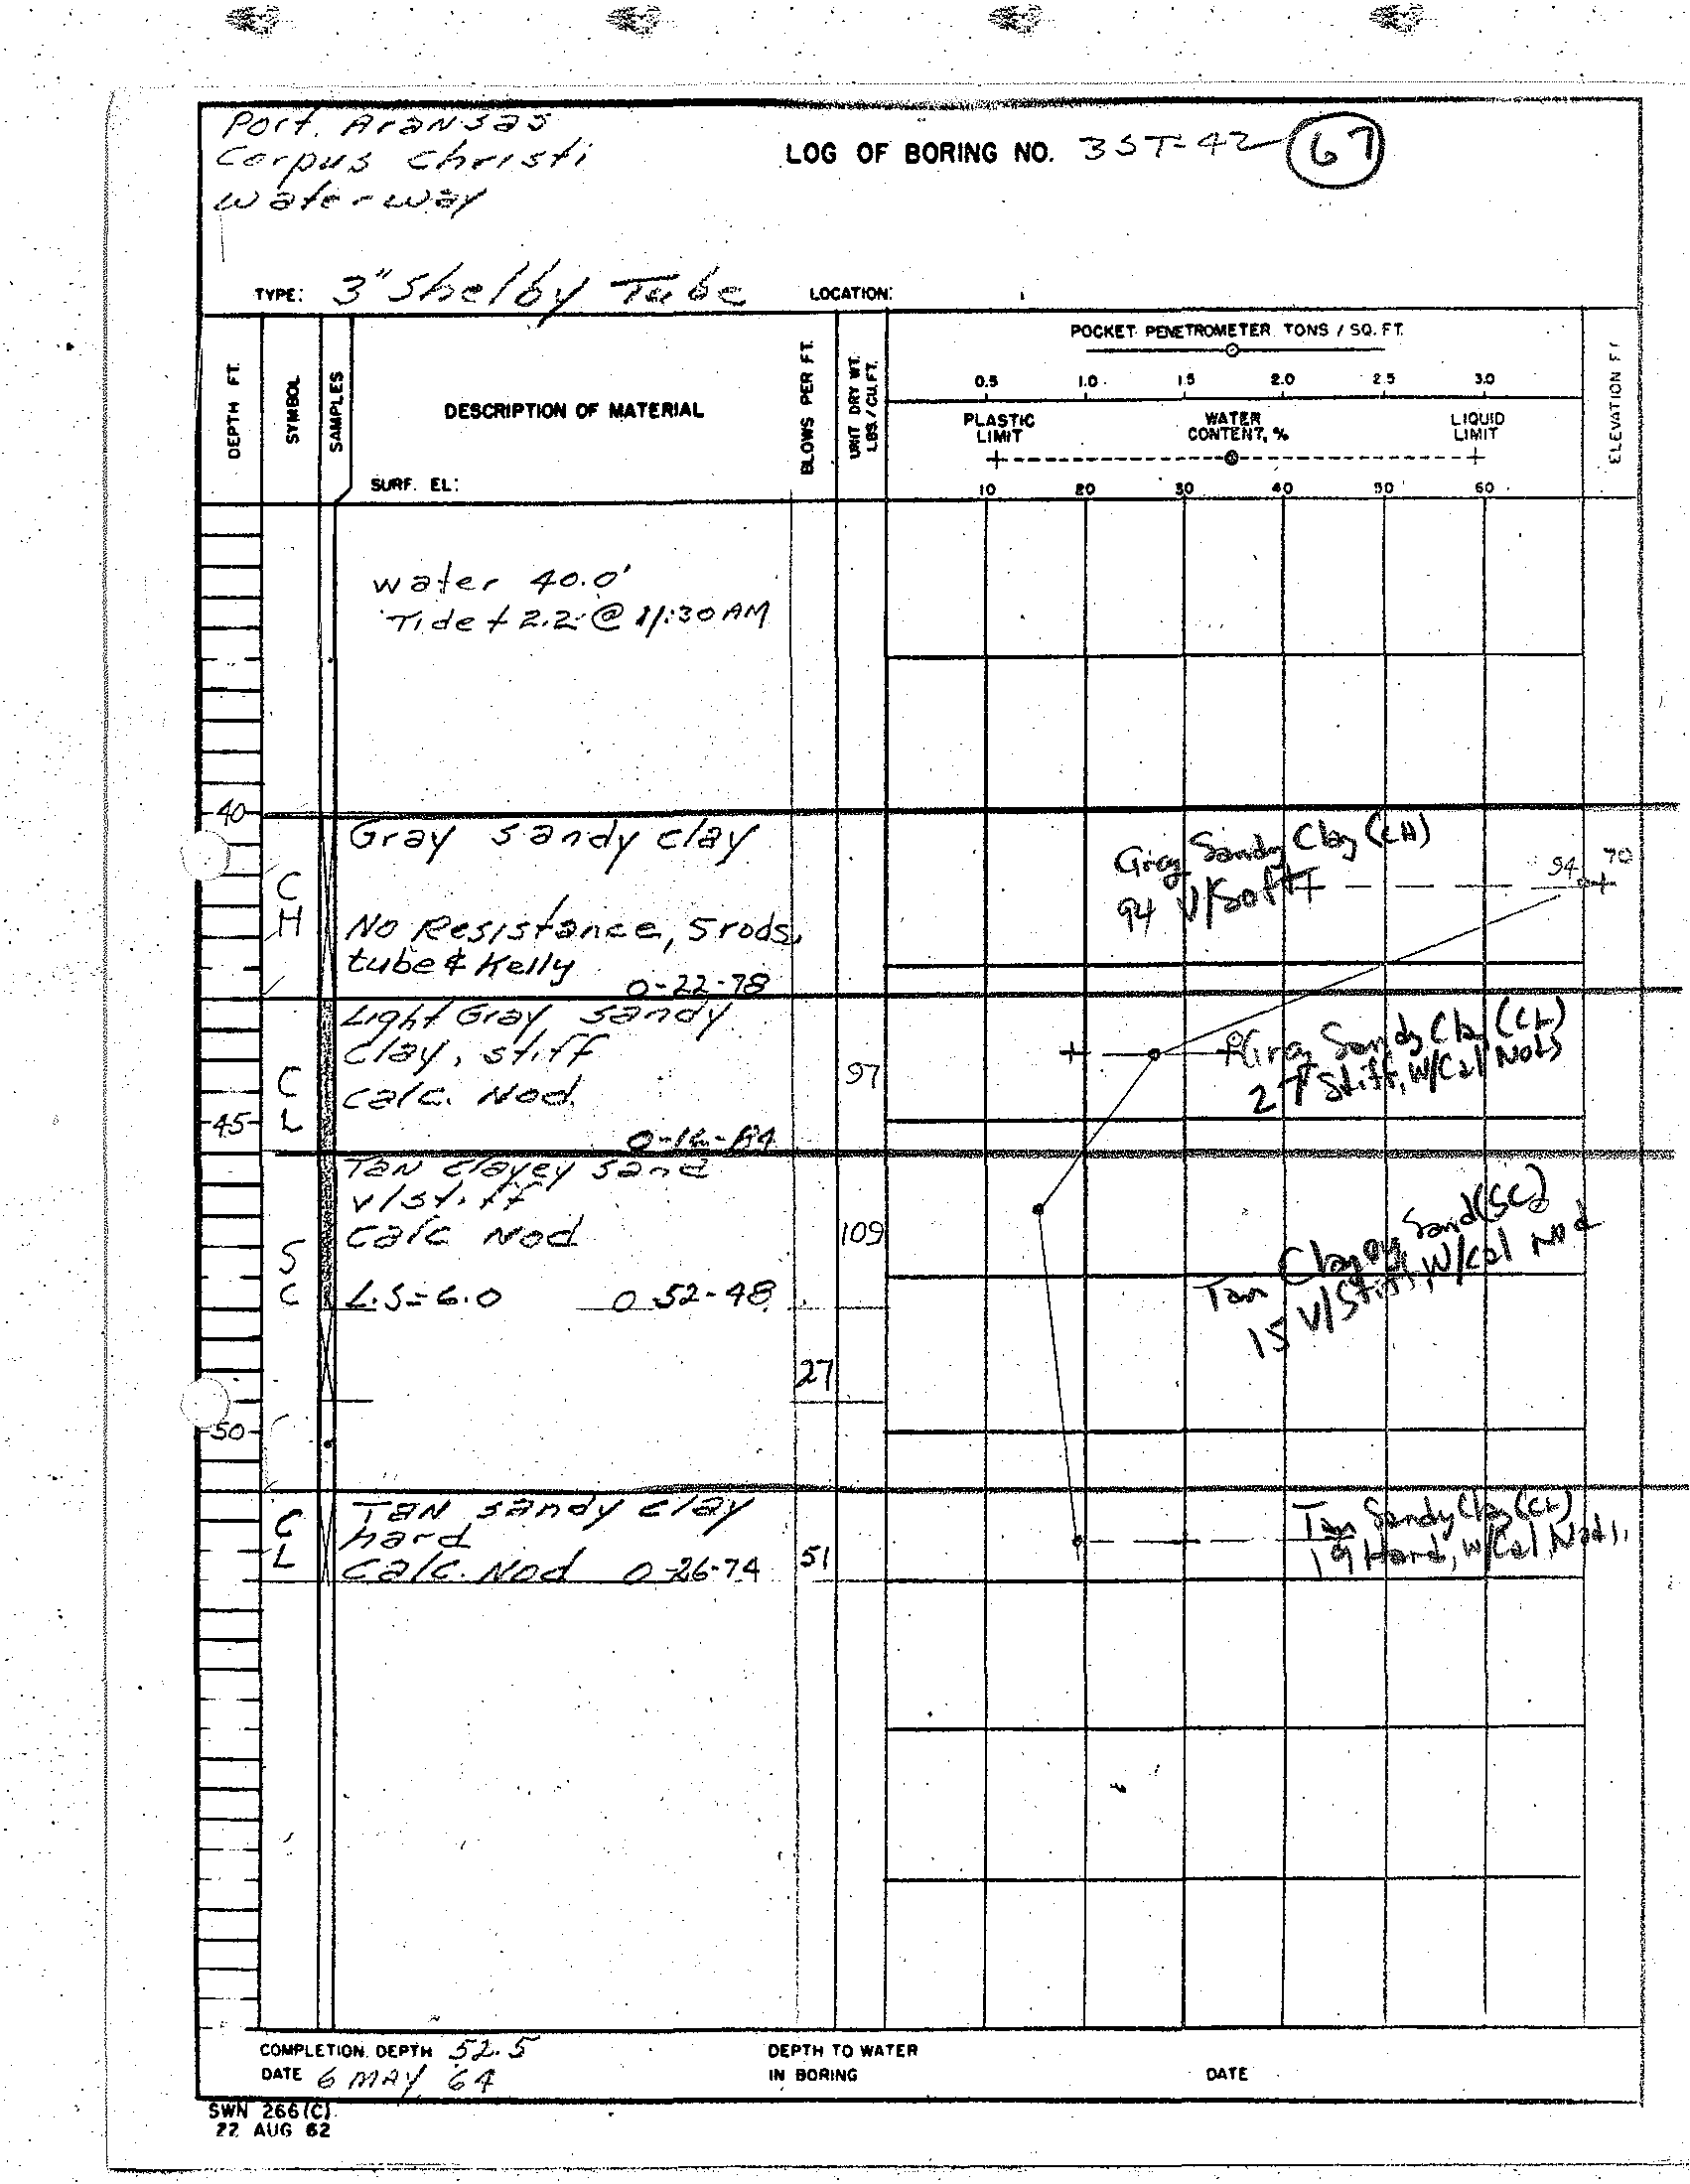 Port. Aransas
Corpus Christi
Waterway
LOG OF BORING NO. 3ST-42 67
TYPE: 3" Shelby Tube LOCATION:
DEPTH FT.
SYMBOL
SAMPLES
DESCRIPTION OF MATERIAL
SURF. EL:
BLOWS PER FT.
UNIT DRY WT.
LBS./CU.FT.
POCKET PENETROMETER TONS / SQ. FT.
0.5 1.0 1.5 2.0 2.5 3.0
PLASTIC LIMIT
WATER CONTENT, %
LIQUID LIMIT
10 20 30 40 50 60
ELEVATION FT
water 40.0'
Tide + 2.2 @ 11:30 AM
40
CH
Gray sandy clay
No Resistance, 5 rods,
tube & Kelly
0-22-78
Gray Sandy Clay (CH)
94 V/Soft
94 70
Light Gray sandy
clay, stiff
calc. Nod.
CL
45
97
Gray Sandy Clay (CL)
27 Stiff, W/Cal Nods
Tan clayey sand
v/stiff
calc Nod
SC
L.S=6.0 0-52-48
109
27
Tan Clayey Sand (SC)
15 V/Stiff, W/Cal Nod
50
CL
Tan sandy clay
hard
calc. Nod 0-26-74
51
Tan Sandy Clay (CL)
19 Hard, W/Cal Nods.
COMPLETION DEPTH 52.5
DATE 6 MAY 64
DEPTH TO WATER
IN BORING
DATE
SWN 266 (C)
22 AUG 62